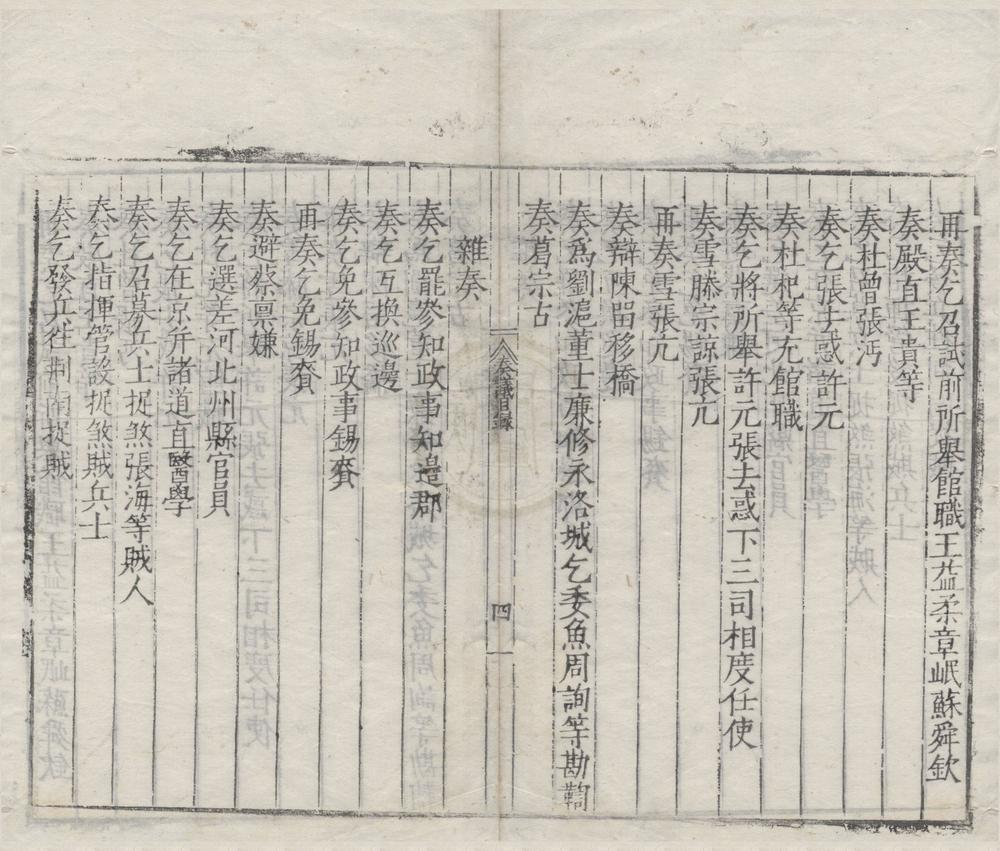 再奏乞召試前所舉館職王益柔章岷蘇舜欽
奏殿直王貴等
奏杜曾張沔
奏乞張去惑許元
奏杜杞等充館職
奏乞將所舉許元張去惑下三司相度任使
奏雪滕宗諒張亢
再奏雪張亢
奏辯陳留移橋
奏爲劉滬董士廉修永洛城乞委魚周詢等勘鞫
奏葛宗古
奏議目錄
四
雜奏
奏乞罷參知政事知邊郡
奏乞互換巡邊
奏乞免參知政事錫賚
再奏乞免錫賚
奏避蔡禀嫌
奏乞選差河北州縣官員
奏乞在京并諸道直醫學
奏乞召募兵士捉煞張海等賊人
奏乞指揮管設捉煞賊兵士
奏乞發兵往荆南捉賊